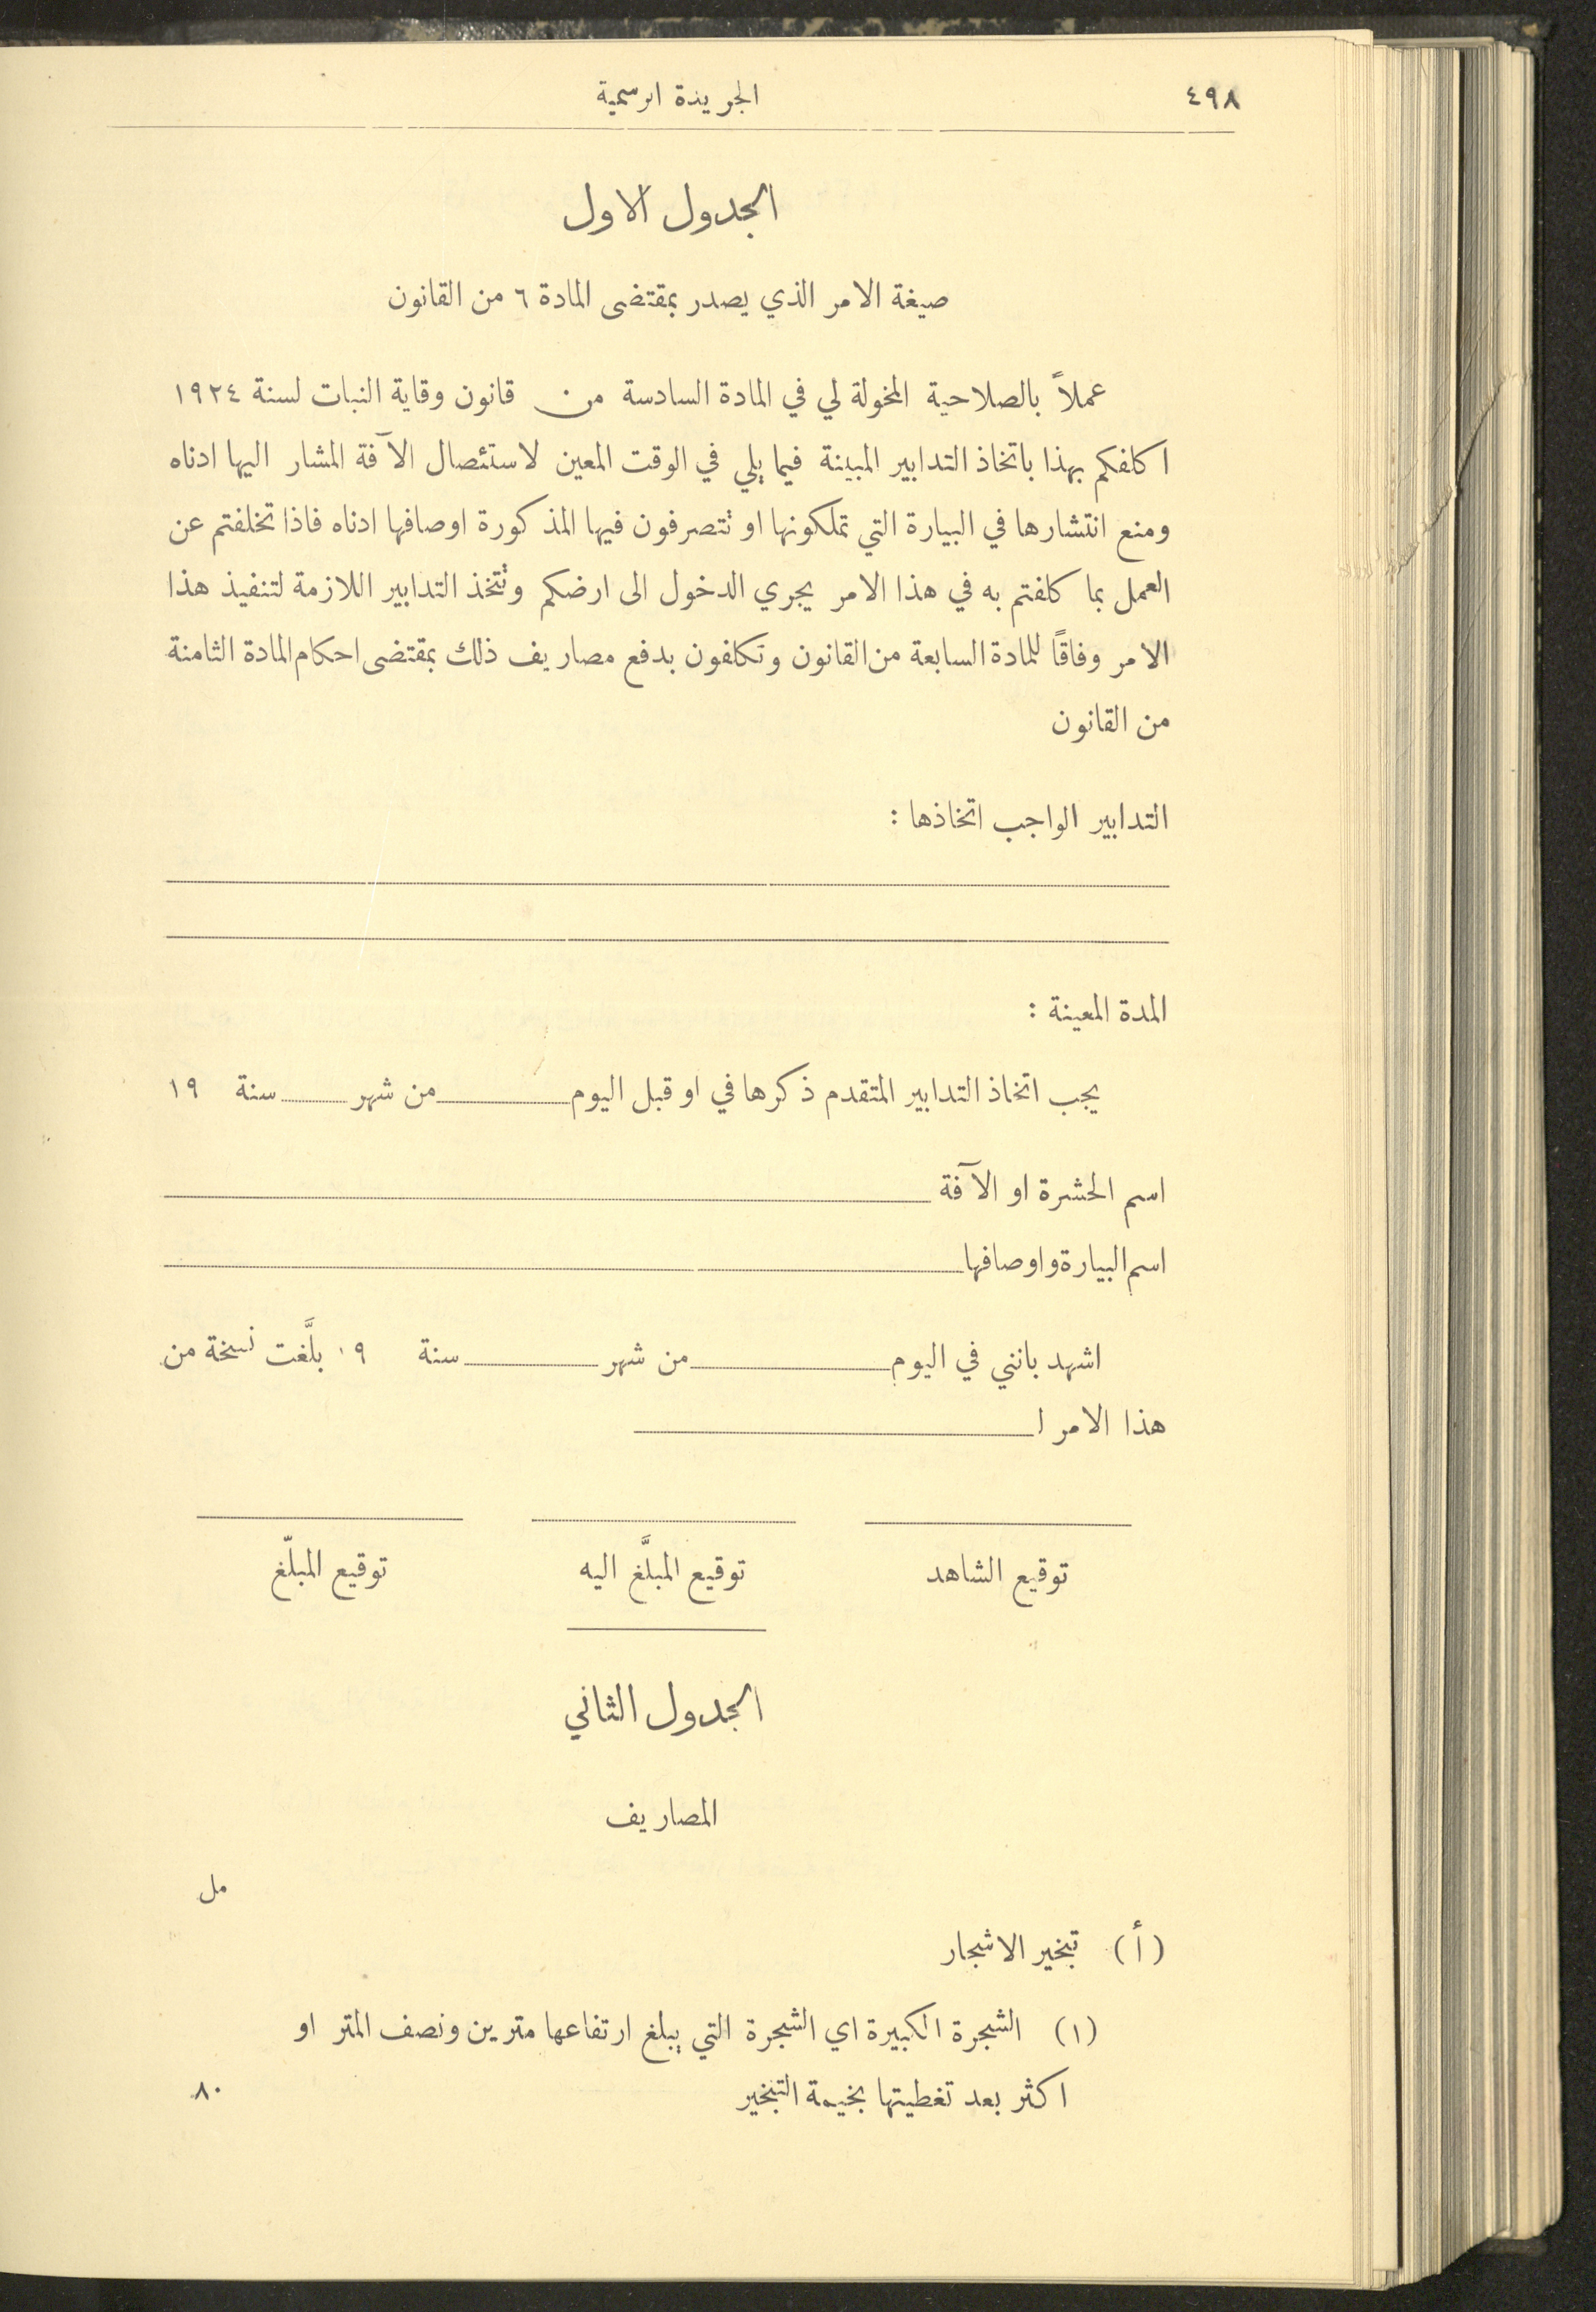 ٤٩٨ الجريدة الرسمية
الجدول الاول
صيغة الامر الذي يصدر بمقتضى المادة ٦ من القانون
عملاً بالصلاحية المخولة لي في المادة السادسة من قانون وقاية النبات لسنة ١٩٢٤
اكلفكم بهذا باتخاذ التدابير المبينة فيما يلي في الوقت المعين لاستئصال الآفة المشار اليها ادناه
ومنع انتشارها في البيارة التي تملكونها او تتصرفون فيها المذكورة اوصافها ادناه فاذا تخلفتم عن
العمل بما كلفتم به في هذا الامر يجري الدخول الى ارضكم وتتخذ التدابير اللازمة لتنفيذ هذا
الامر وفاقًا للمادة السابعة من القانون وتكلفون بدفع مصاريف ذلك بمقتضى احكام المادة الثامنة
من القانون
التدابير الواجب اتخاذها :
المدة المعينة :
يجب اتخاذ التدابير المتقدم ذكرها في او قبل اليوم ــــــ من شهر ــــــ سنة ١٩
اسم الحشرة او الآفة ــــــ
اسم البيارة واوصافها ــــــ
اشهد بانني في اليوم ــــــ من شهر ــــــ سنة ١٩ بلَّغت نسخة من
هذا الامر ا ــــــ
توقيع الشاهد توقيع المبلَّغ اليه توقيع المبلّغ
الجدول الثاني
المصاريف
مل
(أ) تبخير الاشجار
(١) الشجرة الكبيرة اي الشجرة التي يبلغ ارتفاعها مترين ونصف المتر او
اكثر بعد تغطيتها بخيمة التبخير ٨٠